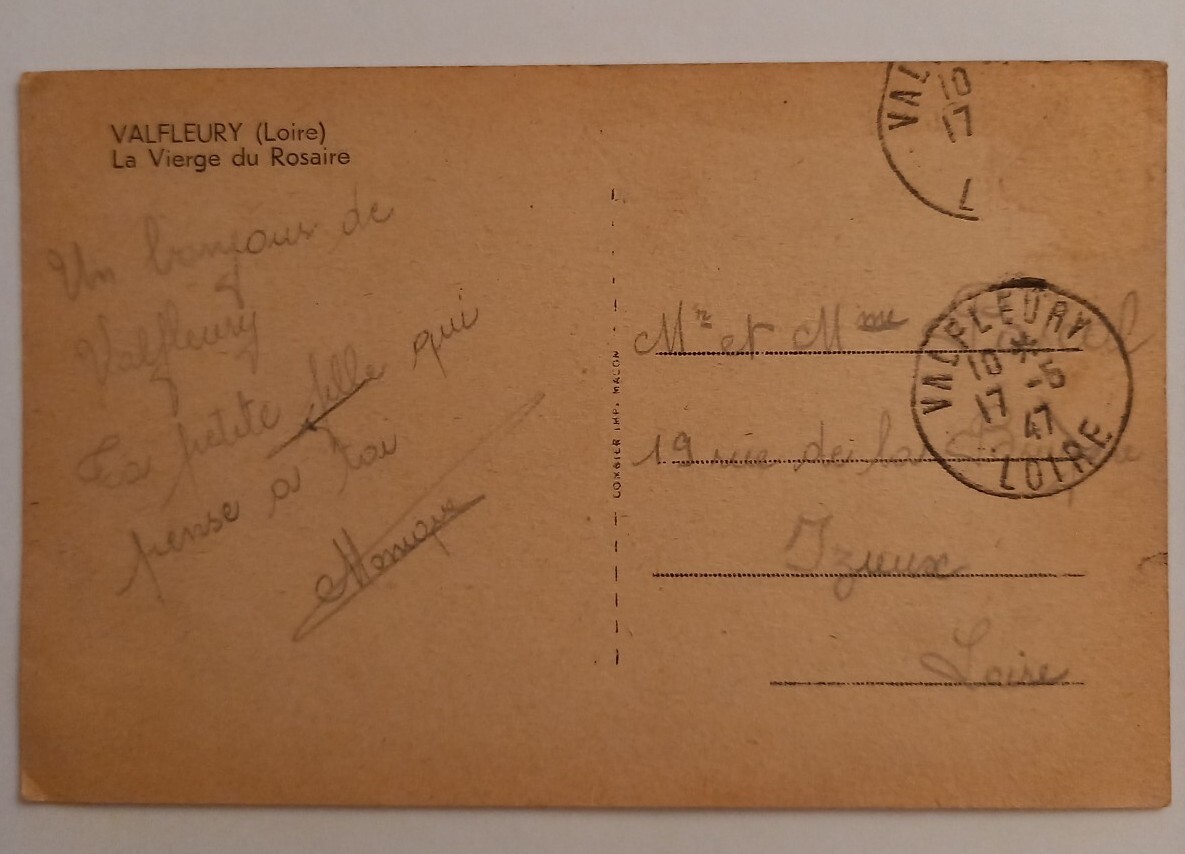 VALFLEURY (Loire)
La Vierge du Rosaire
Un bonjour de
Valfleury
Ta petite fille qui
pense a toi
Monique
COMBIER IMP. MACON
VAL
10
17
L
VALFLEURY
10 * -5
17 47
LOIRE
Mr et Mme
19 rue de la
Izieux
Loire